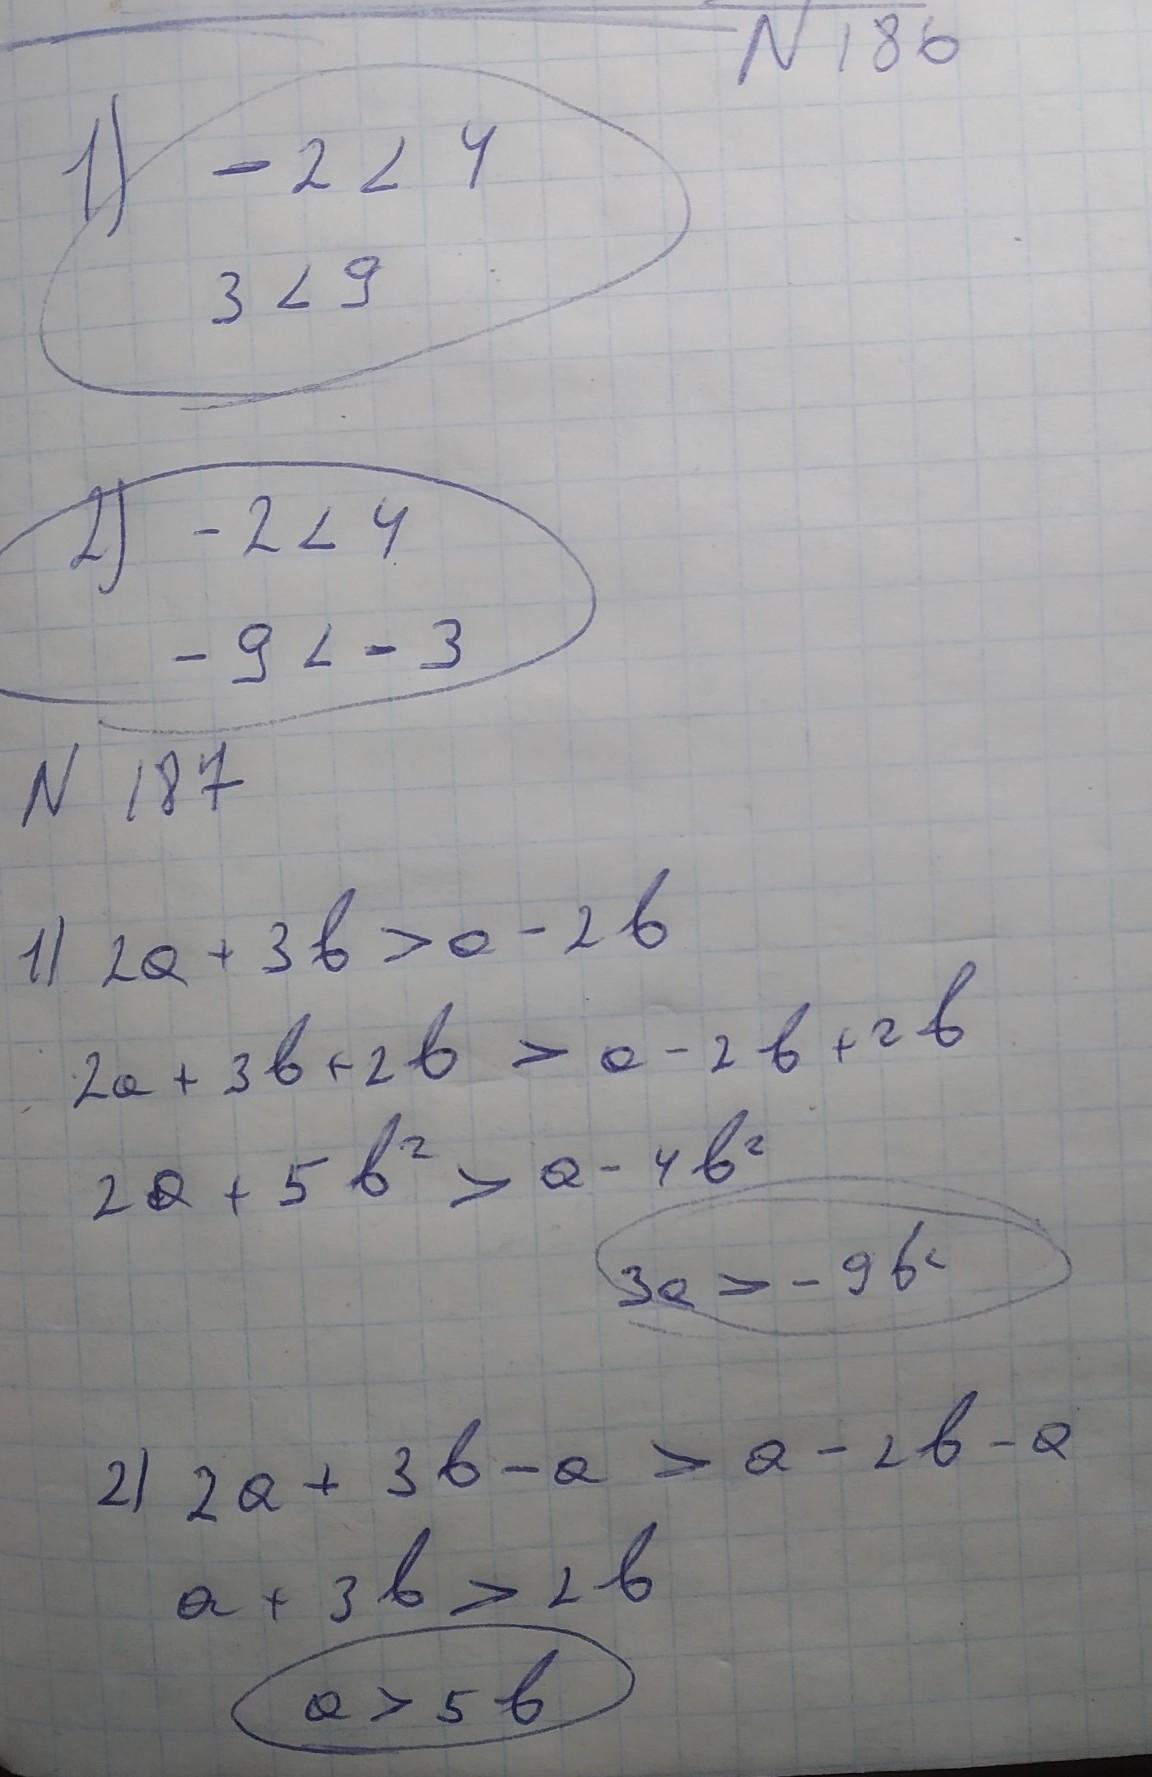 N 186
1) -2 < 4
3 < 9
2) -2 < 4
-9 < -3
N 187
1) 2a + 3b > a - 2b
2a + 3b + 2b > a - 2b + 2b
2a + 5b² > a - 4b²
3a > -9b²
2) 2a + 3b - a > a - 2b - a
a + 3b > 2b
a > 5b